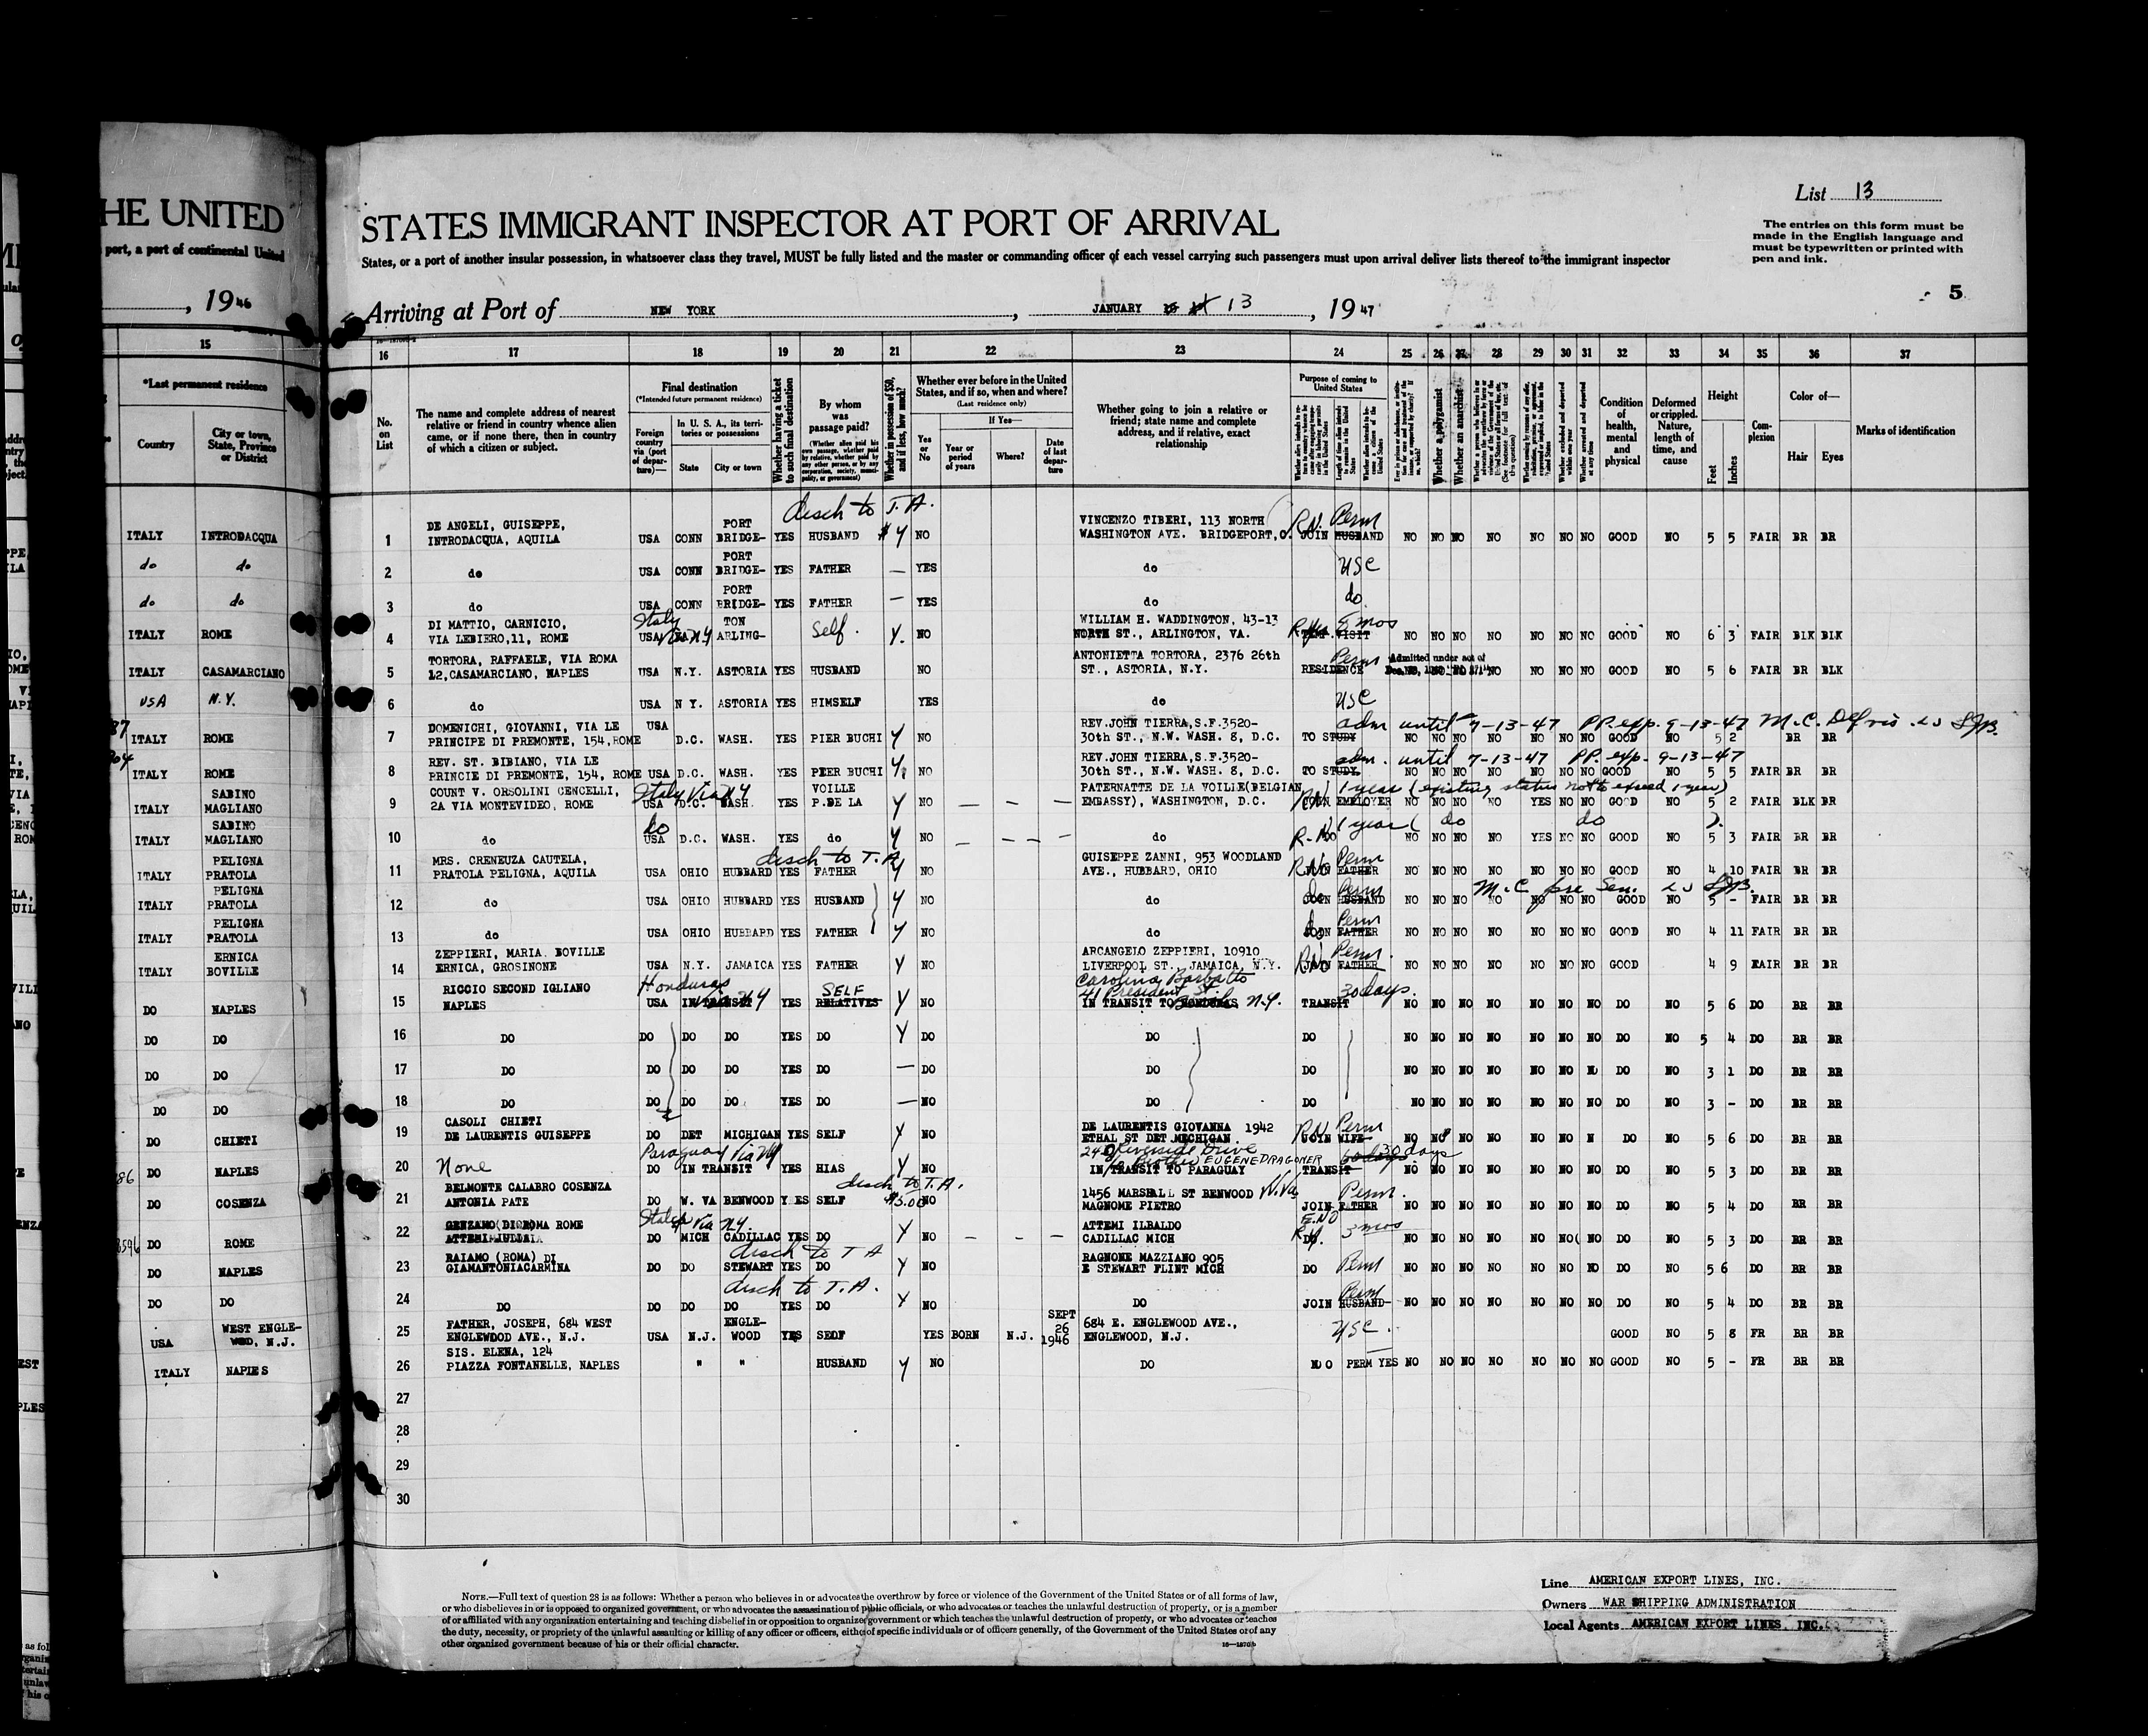 HE UNITED
port, a port of continental United
, 1946
15
*Last permanent residence
Country
City or town, State, Province or District
ITALY INTRODACQUA
do do
do do
ITALY ROME
ITALY CASAMARCIANO
USA N.Y.
ITALY ROME
ITALY ROME
ITALY SABINO MAGLIANO
ITALY SABINO MAGLIANO
ITALY PELIGNA PRATOLA
ITALY PELIGNA PRATOLA
ITALY PELIGNA PRATOLA
ITALY ERNICA BOVILLE
DO NAPLES
DO DO
DO DO
DO DO
DO CHIETI
DO NAPLES
DO COSENZA
DO ROME
DO NAPLES
DO DO
USA WEST ENGLE-WOOD, N.J.
ITALY NAPLES
List 13
STATES IMMIGRANT INSPECTOR AT PORT OF ARRIVAL
The entries on this form must be
made in the English language and
must be typewritten or printed with
pen and ink.
States, or a port of another insular possession, in whatsoever class they travel, MUST be fully listed and the master or commanding officer of each vessel carrying such passengers must upon arrival deliver lists thereof to the immigrant inspector
5
Arriving at Port of NEW YORK , JANUARY 13 , 1947
16 17 18 19 20 21 22 23 24 25 26 27 28 29 30 31 32 33 34 35 36 37
No. on List
The name and complete address of nearest relative or friend in country whence alien came, or if none there, then in country of which a citizen or subject.
Final destination
(*Intended future permanent residence)
Foreign country via (port of departure)—
In U. S. A., its territories or possessions
State
City or town
Whether having a ticket to such final destination
By whom was passage paid?
(Whether alien paid his own passage, whether paid by relative, whether paid by any other person, or by any corporation, society, municipality, or government)
Whether in possession of $50, and if less, how much?
Whether ever before in the United States, and if so, when and where?
(Last residence only)
Yes or No
If Yes—
Year or period of years
Where?
Date of last departure
Whether going to join a relative or friend; state name and complete address, and if relative, exact relationship
Purpose of coming to United States
Whether a polygamist
Whether an anarchist
Condition of health, mental and physical
Deformed or crippled. Nature, length of time, and cause
Height
Feet
Inches
Complexion
Color of—
Hair
Eyes
Marks of identification
disch to T.A.
1 DE ANGELI, GUISEPPE, INTRODACQUA, AQUILA USA CONN PORT BRIDGE- YES HUSBAND $ Y NO VINCENZO TIBERI, 113 NORTH WASHINGTON AVE. BRIDGEPORT, C. Perm JOIN HUSBAND NO NO NO NO NO NO NO GOOD NO 5 5 FAIR BR BR
2 do USA CONN PORT BRIDGE- YES FATHER — YES do USC
3 do USA CONN PORT BRIDGE- YES FATHER — YES do do
4 DI MATTIO, CARNICIO, VIA LEBIERO,11, ROME Italy USA TON ARLING- Self. Y. NO WILLIAM H. WADDINGTON, 43-13 NORTH ST., ARLINGTON, VA. VISIT NO NO NO NO NO NO NO GOOD NO 6 3 FAIR BLK BLK
5 TORTORA, RAFFAELE, VIA ROMA 12,CASAMARCIANO, NAPLES USA N.Y. ASTORIA YES HUSBAND NO ANTONIETTA TORTORA, 2376 26th ST., ASTORIA, N.Y. Perm RESIDENCE Admitted under act of NO NO NO NO GOOD NO 5 6 FAIR BR BLK
6 do USA N Y. ASTORIA YES HIMSELF YES do USC
7 DOMENICHI, GIOVANNI, VIA LE PRINCIPE DI PREMONTE, 154,ROME USA D.C. WASH. YES PIER BUCHI Y NO REV.JOHN TIERRA,S.F.3520- 30th ST., N.W. WASH. 8, D.C. TO STUDY adm until 7-13-47 PP. exp. 9-13-47 NO NO NO NO NO NO NO GOOD NO 5 2 BR BR
8 REV. ST. BIBIANO, VIA LE PRINCIE DI PREMONTE, 154, ROME USA D.C. WASH. YES PEER BUCHI Y. NO REV.JOHN TIERRA,S.F.3520- 30th ST., N.W. WASH. 8, D.C. TO STUDY. adm. until 7-13-47 PP. exp. 9-13-47 NO NO NO NO NO NO NO GOOD NO 5 5 FAIR BR BR
9 COUNT V. ORSOLINI CENCELLI, 2A VIA MONTEVIDEO, ROME Italy Via NY USA D.C. WASH. YES VOILLE P.DE LA Y NO — — — PATERNATTE DE LA VOILLE(BELGIAN EMBASSY), WASHINGTON, D.C. JOIN EMPLOYER 1 year (existing status not to exceed 1 year) NO NO NO NO YES NO NO GOOD NO 5 2 FAIR BLK BR
10 do do USA D.C. WASH. YES do Y NO — — — do R-No 1 year ( do do ). NO NO NO NO YES NO NO GOOD NO 5 3 FAIR BR BR
disch to T.A.
11 MRS. CRENEUZA CAUTELA, PRATOLA PELIGNA, AQUILA USA OHIO HUBBARD YES FATHER Y NO GUISEPPE ZANNI, 953 WOODLAND AVE., HUBBARD, OHIO Perm JOIN FATHER NO NO NO NO NO NO NO GOOD NO 4 10 FAIR BR BR
12 do USA OHIO HUBBARD YES HUSBAND Y NO do do Perm JOIN HUSBAND NO NO NO NO NO NO NO GOOD NO 5 - FAIR BR BR
13 do USA OHIO HUBBARD YES FATHER Y NO do do Perm JOIN FATHER NO NO NO NO NO NO NO GOOD NO 4 11 FAIR BR BR
14 ZEPPIERI, MARIA. BOVILLE ERNICA, GROSINONE USA N.Y. JAMAICA YES FATHER Y NO ARCANGELO ZEPPIERI, 10910 LIVERPOOL ST., JAMAICA, N.Y. Perm. JOIN FATHER NO NO NO NO NO NO NO GOOD 4 9 FAIR BR BR
15 RICCIO SECOND IGLIANO NAPLES Honduras USA IN TRANSIT YES SELF RELATIVES Y NO Carolina Barbatto 41 President St. IN TRANSIT TO HONDURAS N.Y. TRANSIT 30 days. NO NO NO NO NO NO NO DO NO 5 6 DO BR BR
16 DO DO DO DO YES DO Y DO DO DO NO NO NO NO NO NO NO DO NO 5 4 DO BR BR
17 DO DO DO DO YES DO — DO DO DO NO NO NO NO NO NO N DO NO 3 1 DO BR BR
18 DO DO DO DO YES DO — NO DO DO NO NO NO NO NO NO NO DO NO 3 - DO BR BR
19 CASOLI CHIETI DE LAURENTIS GUISEPPE DO DET MICHIGAN YES SELF Y NO DE LAURENTIS GIOVANNA 1942 ETHAL ST DET MECHIGAN. Perm JOIN WIFE NO NO NO NO NO NO N DO NO 5 6 DO BR BR
20 None Paraguay Via NY DO IN TRANSIT YES HIAS Y NO Riverside Drive Brother EUGENE DRAGONER IN TRANSIT TO PARAGUAY TRANSIT 30 days NO NO NO NO NO NO NO DO NO 5 3 DO BR BR
disch to T.A.
21 BELMONTE CALABRO COSENZA ANTONIA PATE DO W. VA BENWOOD Y ES SELF $5.00 NO 1456 MARSHALL ST BENWOOD W.Va. MAGNOME PIETRO Perm. JOIN FATHER NO NO NO NO NO NO NO DO NO 5 4 DO BR BR
22 GENZANO(DI ROMA ROME Via N.Y. DO MICH CADILLAC YES DO Y NO - - - ATTEMI ILBALDO CADILLAC MICH DO. 3 mos NO NO NO NO NO NO( NO DO NO 5 3 DO BR BR
disch to T A
23 RAIAMO (ROMA) DI GIAMANTONIACARMINA DO DO STEWART YES DO Y NO RAGNONE MAZZIANO 905 E STEWART FLINT MICH DO Perm NO NO NO NO NO NO NO DO NO 5 6 DO BR BR
disch to T.A.
24 DO DO DO DO YES DO Y NO DO Perm JOIN HUSBAND NO NO NO NO NO NO NO DO NO 5 4 DO BR BR
25 FATHER, JOSEPH, 684 WEST ENGLEWOOD AVE., N.J. USA N.J. ENGLE-WOOD YES SEOF YES BORN N.J. SEPT 26 1946 684 E. ENGLEWOOD AVE., ENGLEWOOD, N.J. USC. GOOD NO 5 8 FR BR BR
26 SIS. ELENA, 124 PIAZZA FONTANELLE, NAPLES " " HUSBAND Y NO DO NO PERM YES NO NO NO NO NO NO NO GOOD NO 5 - FR BR BR
27
28
29
30
NOTE.—Full text of question 28 is as follows: Whether a person who believes in or advocates the overthrow by force or violence of the Government of the United States or of all forms of law,
or who disbelieves in or is opposed to organized government, or who advocates the assassination of public officials, or who advocates or teaches the unlawful destruction of property, or is a member
of or affiliated with any organization entertaining and teaching disbelief in or opposition to organized government or which teaches the unlawful destruction of property, or who advocates or teaches
the duty, necessity, or propriety of the unlawful assaulting or killing of any officer or officers, either of specific individuals or of officers generally, of the Government of the United States or of any
other organized government because of his or their official character.
Line AMERICAN EXPORT LINES, INC.
Owners WAR SHIPPING ADMINISTRATION
Local Agents AMERICAN EXPORT LINES, INC.